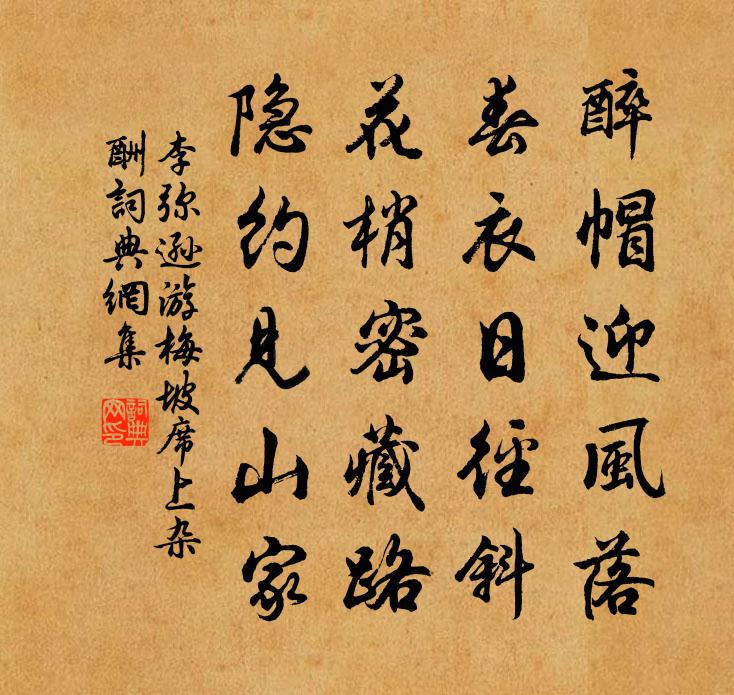 醉帽迎風落
春衣日徑斜
花梢密藏路
隐約見山家
李弥遜游梅坡席上杂
酬詞典網集
詞典網印